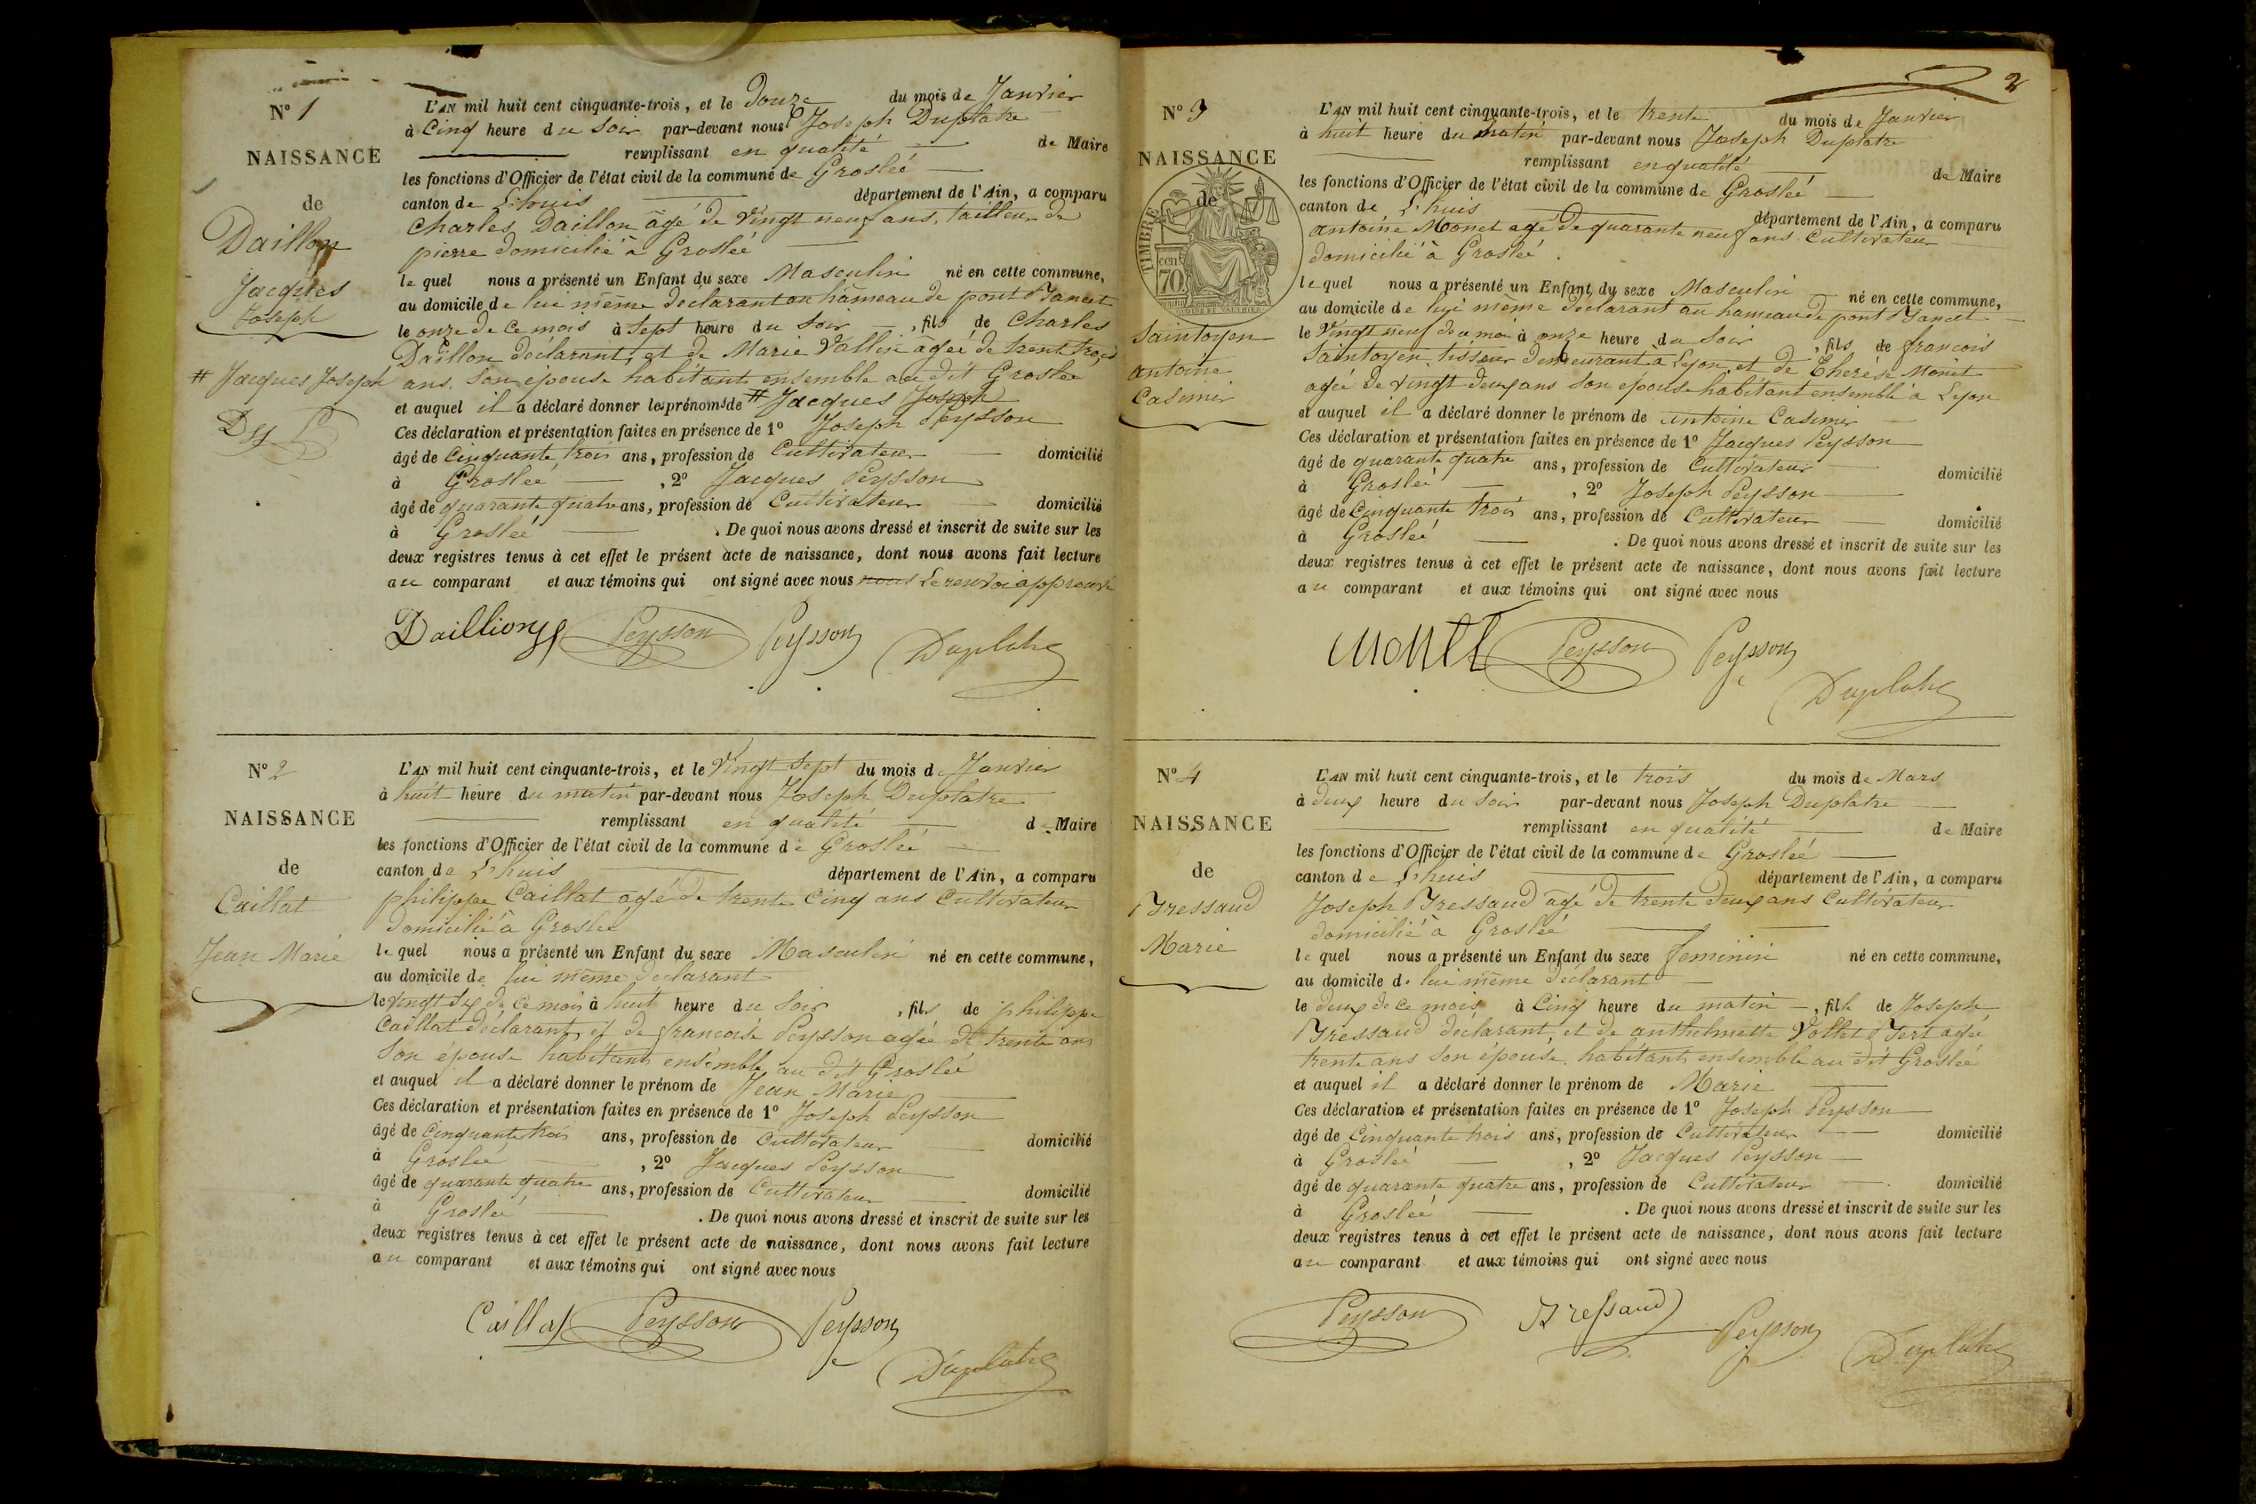 N° 1
NAISSANCE
de
Daillon
Jacques
Joseph
# Jacques Joseph
L'AN mil huit cent cinquante-trois, et le douze du mois de Janvier
à cinq heure du soir par-devant nous Joseph Duplatre
remplissant en qualité de Maire
les fonctions d'Officier de l'état civil de la commune de Groslée
canton de Lhuis département de l'Ain, a comparu
Charles Daillon âgé de vingt neuf ans, tailleur de
pierre domicilié à Groslée
lequel nous a présenté un Enfant du sexe Masculin né en cette commune,
au domicile de lui même déclarant au hameau de pont Bancet
le onze de ce mois à sept heure du soir, fils de Charles
Daillon déclarant, et de Marie Vallin âgée de trente trois
ans son épouse habitant ensemble au dit Groslée
et auquel il a déclaré donner les prénoms de # Jacques Joseph
Ces déclaration et présentation faites en présence de 1° Joseph Peysson
âgé de cinquante trois ans, profession de Cultivateur domicilié
à Groslée, 2° Jacques Peysson
âgé de quarante quatre ans, profession de Cultivateur domicilié
à Groslée. De quoi nous avons dressé et inscrit de suite sur les
deux registres tenus à cet effet le présent acte de naissance, dont nous avons fait lecture
au comparant et aux témoins qui ont signé avec nous nous Le renvoi approuvé
Daillion Peysson Peysson Duplatre
N° 2
NAISSANCE
de
Caillat
Jean Marie
L'AN mil huit cent cinquante-trois, et le vingt sept du mois de Janvier
à huit heure du matin par-devant nous Joseph Duplatre
remplissant en qualité de Maire
les fonctions d'Officier de l'état civil de la commune de Groslée
canton de Lhuis département de l'Ain, a comparu
philippe Caillat agé de trente cinq ans Cultivateur
domicilié à Groslée
lequel nous a présenté un Enfant du sexe Masculin né en cette commune,
au domicile de lui même déclarant
le vingt six de ce mois à huit heure du soir, fils de philippe
Caillat déclarant, et de francoise Peysson agée de trente ans
son épouse habitant ensemble au dit Groslée
et auquel il a déclaré donner le prénom de Jean Marie
Ces déclaration et présentation faites en présence de 1° Joseph Peysson
âgé de cinquante trois ans, profession de Cultivateur domicilié
à Groslée, 2° Jacques Peysson
âgé de quarante quatre ans, profession de Cultivateur domicilié
à Groslée. De quoi nous avons dressé et inscrit de suite sur les
deux registres tenus à cet effet le présent acte de naissance, dont nous avons fait lecture
au comparant et aux témoins qui ont signé avec nous
Caillat Peysson Peysson Duplatre
2
N° 3
NAISSANCE
de
TIMBRE
70 cent
Saintoyen
antoine
Casimir
L'AN mil huit cent cinquante-trois, et le trente du mois de Janvier
à huit heure du matin par-devant nous Joseph Duplatre
remplissant en qualité de Maire
les fonctions d'Officier de l'état civil de la commune de Groslée
canton de Lhuis département de l'Ain, a comparu
antoine Monet agé de quarante neuf ans Cultivateur
domicilié à Groslée.
lequel nous a présenté un Enfant du sexe Masculin né en cette commune,
au domicile de lui même déclarant au hameau de pont Bancet
le vingt neuf de ce moi à onze heure du soir, fils de francois
Saintoyen tisseur demeurant à Lyon, et de Therése Monet
agée de vingt deux ans son epouse habitant ensemble à Lyon
et auquel il a déclaré donner le prénom de antoine Casimir
Ces déclaration et présentation faites en présence de 1° Jacques Peysson
âgé de quarante quatre ans, profession de Cultivateur domicilié
à Groslée, 2° Joseph Peysson
âgé de Cinquante trois ans, profession de Cultivateur domicilié
à Groslée. De quoi nous avons dressé et inscrit de suite sur les
deux registres tenus à cet effet le présent acte de naissance, dont nous avons fait lecture
au comparant et aux témoins qui ont signé avec nous
Monet Peysson Peysson Duplatre
N° 4
NAISSANCE
de
Bressaud
Marie
L'AN mil huit cent cinquante-trois, et le trois du mois de Mars
à deux heure du soir par-devant nous Joseph Duplatre
remplissant en qualité de Maire
les fonctions d'Officier de l'état civil de la commune de Groslée
canton de Lhuis département de l'Ain, a comparu
Joseph Bressaud agé de trente deux ans Cultivateur
domicilié à Groslée
lequel nous a présenté un Enfant du sexe feminin né en cette commune,
au domicile de lui même déclarant
le deux de ce mois à Cinq heure du matin, fille de Joseph
Bressaud déclarant, et de anthelmette Vollet Bert agée
trente ans son épouse, habitant ensemble au dit Groslée
et auquel il a déclaré donner le prénom de Marie
Ces déclaration et présentation faites en présence de 1° Joseph Peysson
âgé de Cinquante trois ans, profession de Cultivateur domicilié
à Groslée, 2° Jacques Peysson
âgé de quarante quatre ans, profession de Cultivateur domicilié
à Groslée. De quoi nous avons dressé et inscrit de suite sur les
deux registres tenus à cet effet le présent acte de naissance, dont nous avons fait lecture
au comparant et aux témoins qui ont signé avec nous
Peysson Bressaud Peysson Duplatre